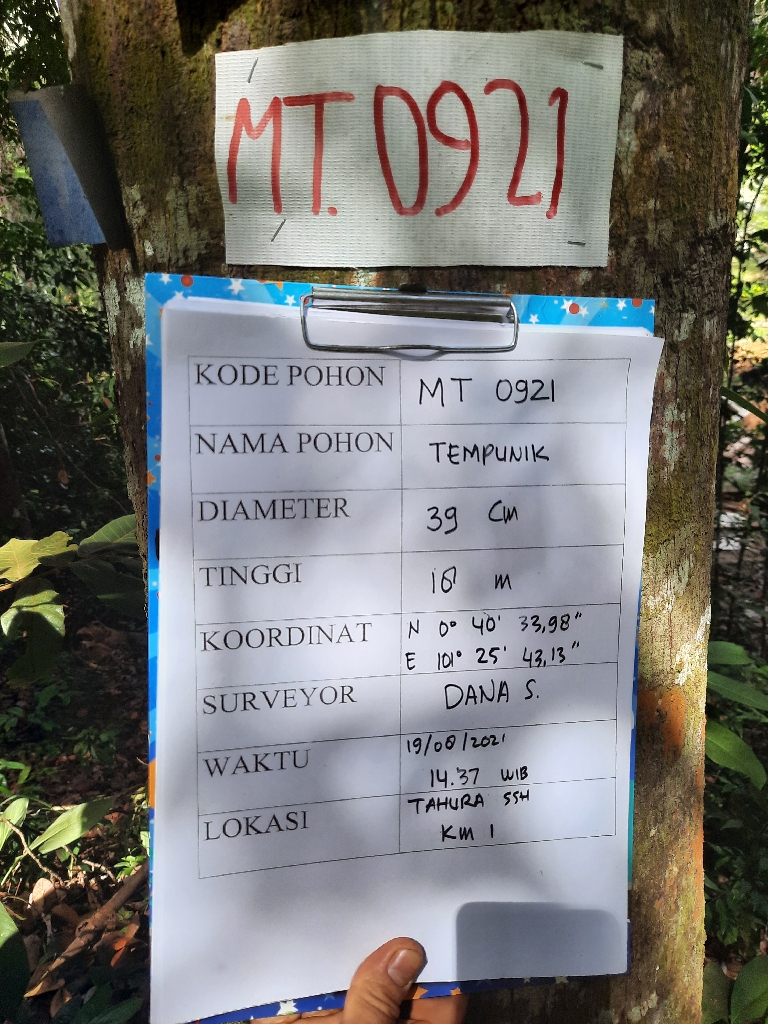 MT. 0921
KODE POHON MT 0921
NAMA POHON TEMPUNIK
DIAMETER 39 Cm
TINGGI 18 m
KOORDINAT N 0° 40' 33,98"
E 101° 25' 43,13"
SURVEYOR DANA S.
WAKTU 19/08/2021
14.37 WIB
LOKASI TAHURA SSH
KM 1